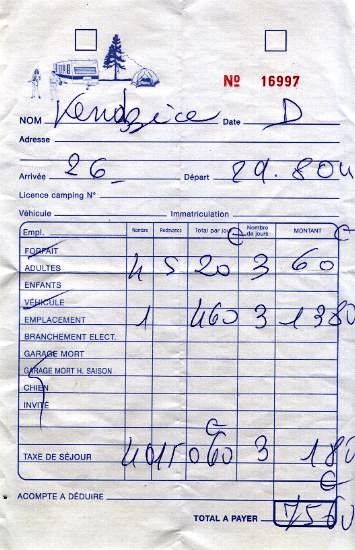 Nº 16997
NOM Date D
Adresse
Arrivée 26 Départ 29.
Licence camping N°
Véhicule Immatriculation
Empl. Nombre Redevance Total par jour Nombre de jours MONTANT
FORFAIT
ADULTES 4 5 20 3 60
ENFANTS
VÉHICULE
EMPLACEMENT 1 460 3 1380
BRANCHEMENT ELECT.
GARAGE MORT
GARAGE MORT H. SAISON
CHIEN
INVITÉ
TAXE DE SÉJOUR 4 015 060 3 180
ACOMPTE A DÉDUIRE
TOTAL A PAYER